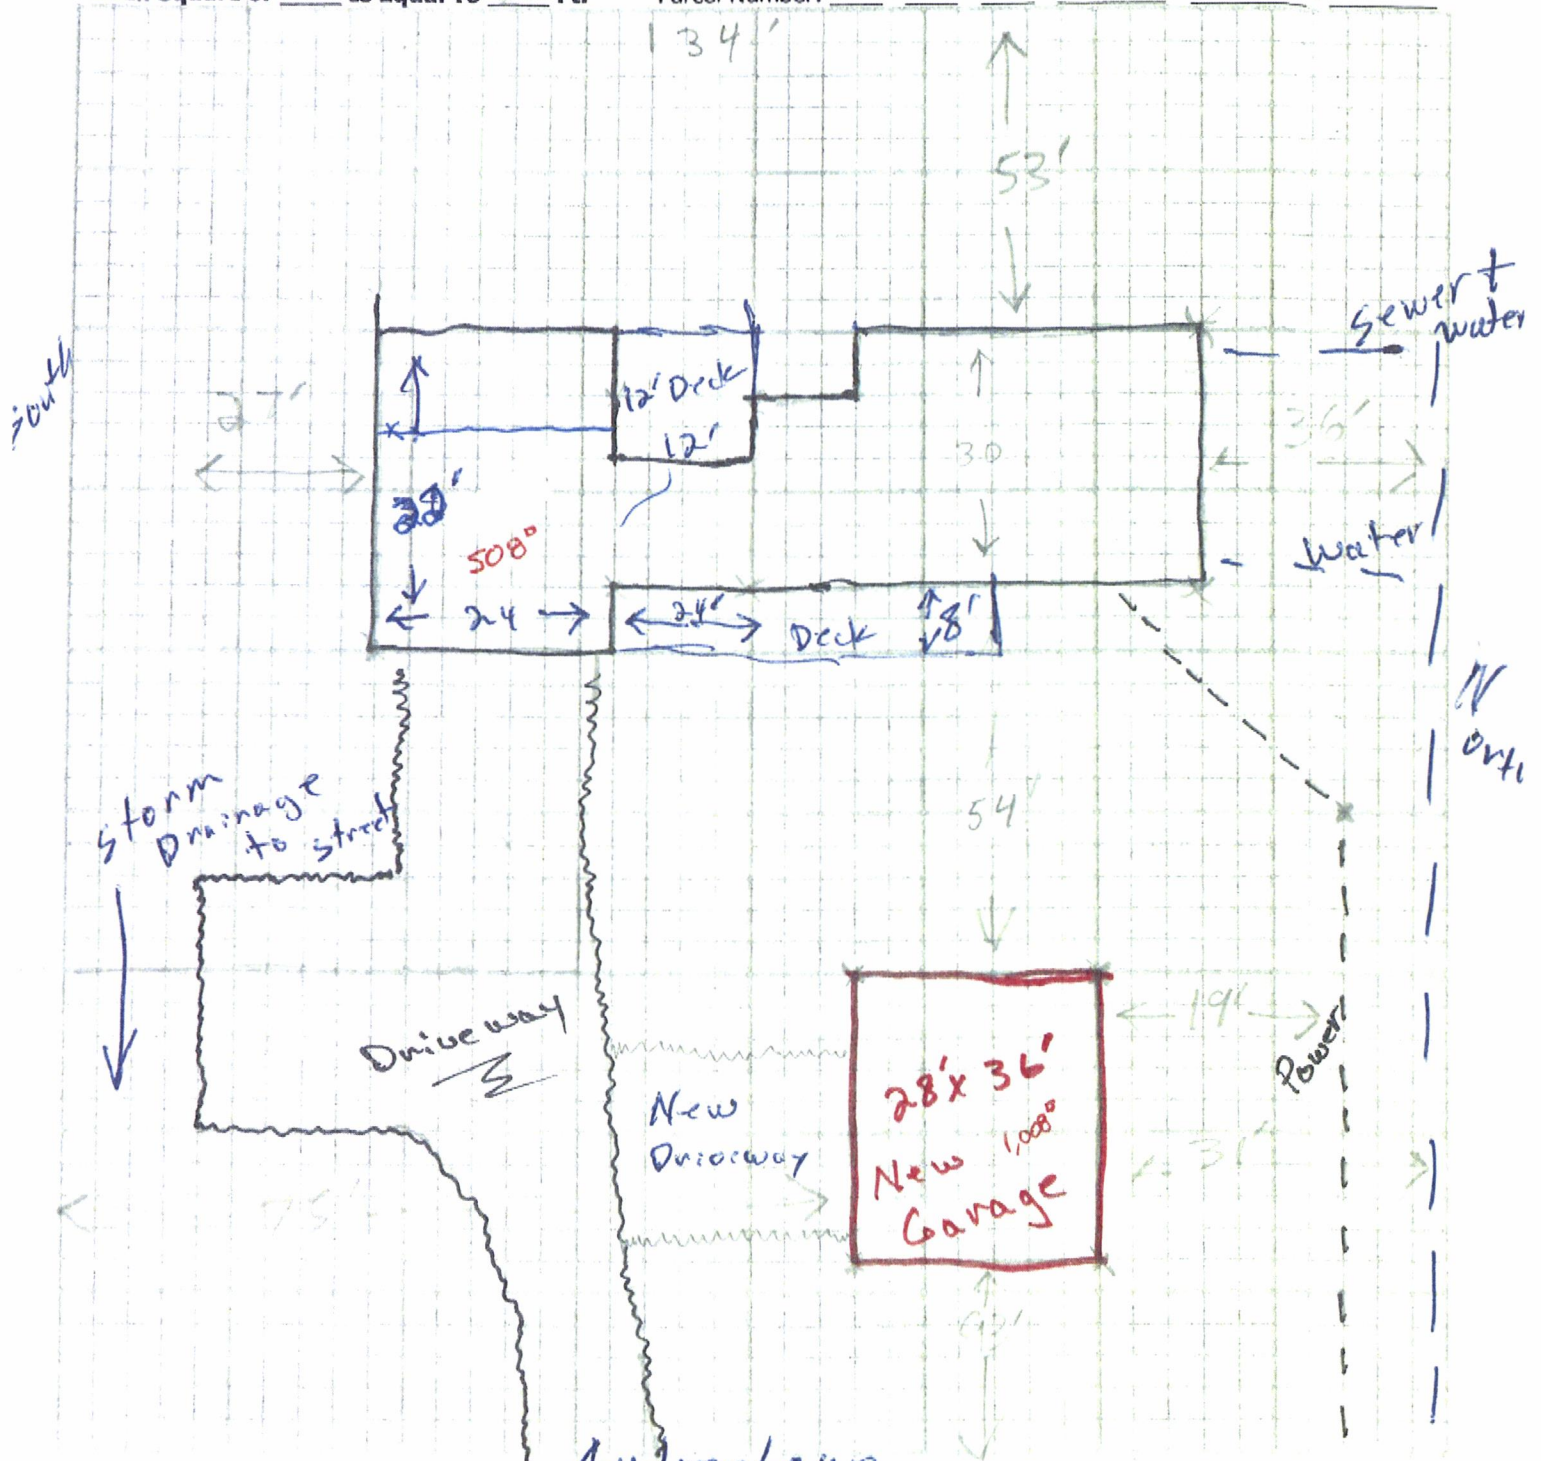 134'
53'
Sewer +
water
South
27'
12' Deck
12'
30
36'
508°
water
24
24'
Deck
8'
North
54'
Storm
Drainage
to street
Driveway
19'
Power
28' x 36'
1,008°
New
Garage
New
Driveway
31'
75'